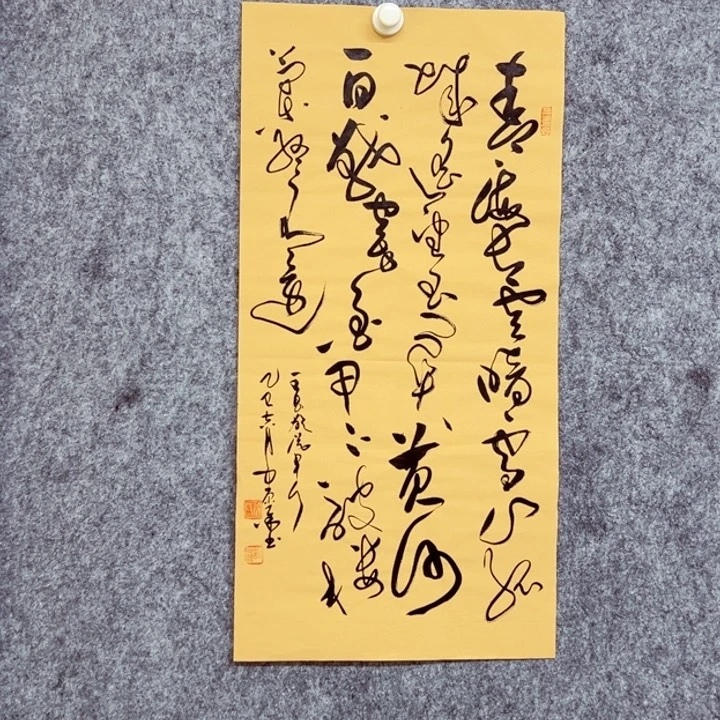 青海长云暗雪山孤
城遥望玉门关黄沙
百战穿金甲不破楼
兰终不还
王昌龄从军行
乙巳六月